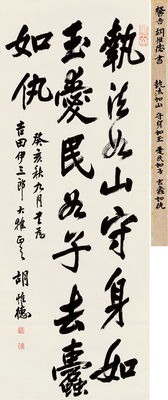 馨吾胡惟德書 執法如山 守身如玉 愛民如子 去蠹如仇
執法如山守身如
玉愛民如子去蠹
如仇
癸亥秋九月書為
吉田伊三郎大雅正之
胡惟德